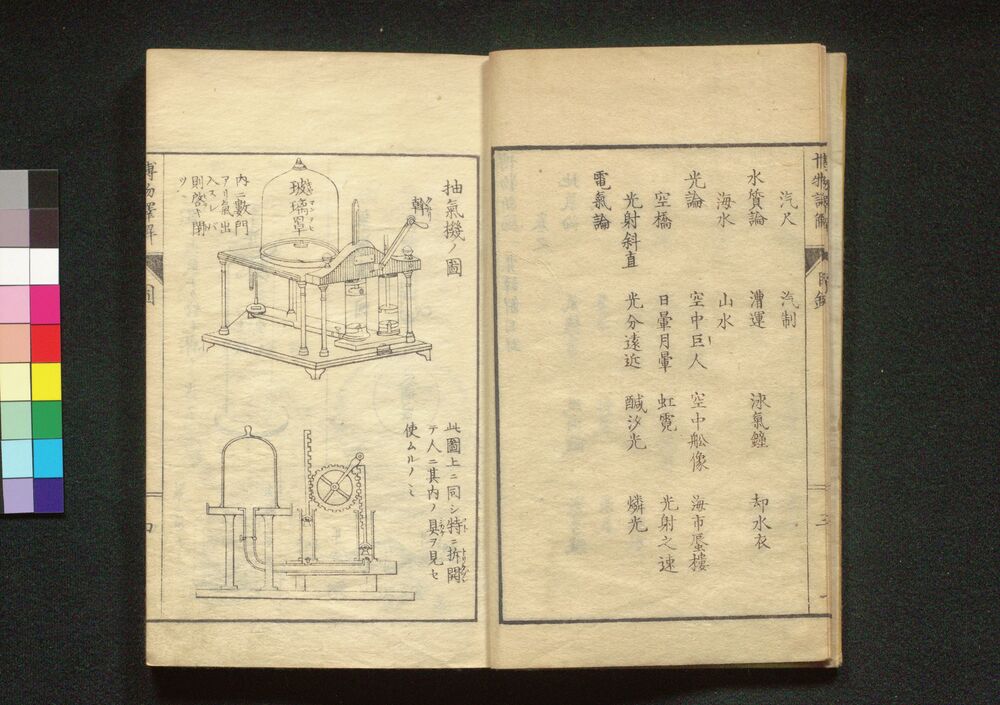 汽尺　汽制
水質論　漕運　泳氣鐘　却水衣
海水　山水
光論　空中巨人　空中舩像　海市蜃樓
空橋　日暈月暈　虹霓　光射之速
光射斜直　光分遠近　鹹汐光　燐光
電氣論
抽氣機ノ圖
玻璃罩
内ニ數門
アリ氣出
入スレバ
則啓キ閉
ツ
此圖上ニ同シ特ニ拆開
テ人ニ其内ノ具ヲ見セ
使ムルノミ